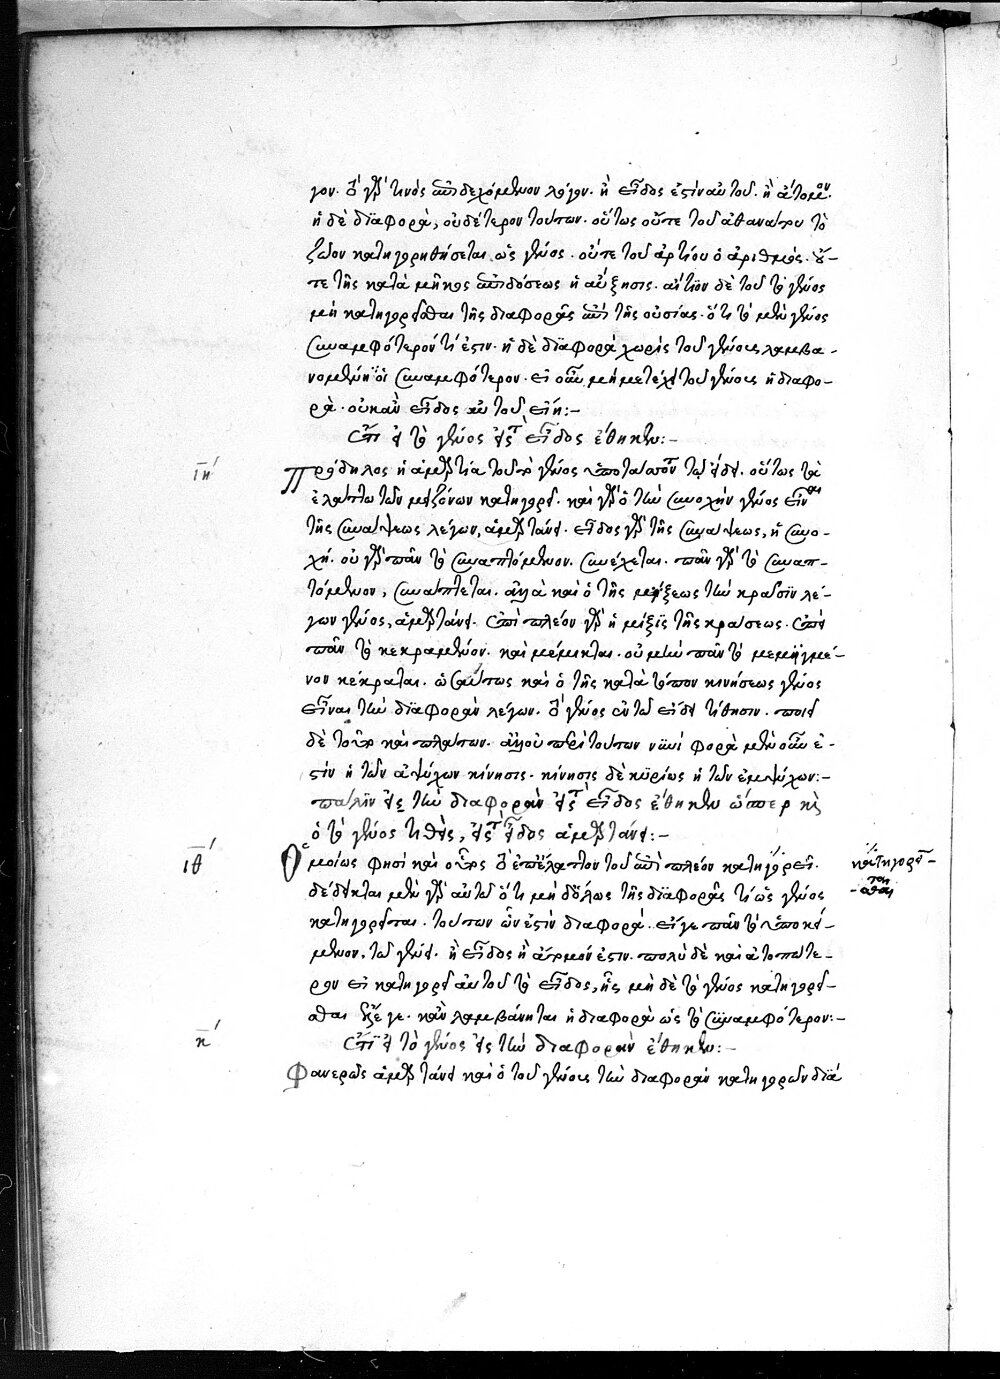 γον. ὃ γὰρ τινὸς ἀποδεχόμενον λόγον. ἢ εἶδος ἐστὶν αὐτοῦ. ἢ ἄτομον.
ἡ δὲ διαφορὰ, οὐδέτερον τούτων. οὕτως οὔτε τοῦ ἀθανάτου τὸ
ζῶον κατηγορηθήσεται ὡς γένος. οὔτε τοῦ ἀρτίου ὁ ἀριθμός. οὔ-
τε τῆς κατὰ μῆκος ἀποδόσεως ἡ αὔξησις. αἴτιον δὲ τοῦ τὸ γένος
μὴ κατηγορεῖσθαι τῆς διαφορᾶς ἀπὸ τῆς οὐσίας. ὅτι τὸ μὲν γένος
συναμφότερόν τί ἐστιν. ἡ δὲ διαφορὰ χωρὶς τοῦ γένους λαμβα-
νομένη οἱ συναμφότερον. εἰ οὖν μὴ μετέχει τοῦ γένους ἡ διαφο-
ρὰ. οὐκ ἂν εἶδος αὐτοῦ εἴη:-
ἐπεὶ τὸ γένος εἰς τὸ εἶδος ἔθηκεν:-
ιη΄
Πρόδηλος ἡ ἁμαρτία τοῦ τὸ γένος ὑποτάττοντος τῷ εἴδει. οὕτως τὰ
ἐλάττω τῶν μειζόνων κατηγορεῖ. καὶ γὰρ ὁ τὴν συνοχὴν γένος εἶναι
τῆς συνάψεως λέγων, ἁμαρτάνει. εἶδος γὰρ τῆς συνάψεως, ἡ συνο-
χή. οὐ γὰρ πᾶν τὸ συναπτόμενον. συνέχεται. πᾶν γὰρ τὸ συναπ-
τόμενον, συνάπτεται. ἀλλὰ καὶ ὁ τῆς μίξεως τὴν κρᾶσιν λέ-
γων γένος, ἁμαρτάνει. ἐπὶ πλέον γὰρ ἡ μίξις τῆς κράσεως.
πᾶν τὸ κεκραμένον. καὶ μέμικται. οὐ μὴν πᾶν τὸ μεμιγμέ-
νον κέκραται. ὡσαύτως καὶ ὁ τῆς κατὰ τόπον κινήσεως γένος
εἶναι τὴν διαφορὰν λέγων. ὃ γένος αὐτῷ εἴδει τίθησιν. ποιεῖ
δὲ τοῦτο καὶ πλάτων. ἀλλ' οὐ περὶ τούτων νυνὶ φορὰ μὲν οὖν ἐ-
στὶν ἡ τῶν ἀψύχων κίνησις. κίνησις δὲ κυρίως ἡ τῶν ἐμψύχων:-
πάλιν εἰς τὴν διαφορὰν εἰς τὸ εἶδος ἔθηκεν ὥσπερ καὶ
ὁ τὸ γένος τιθεὶς, εἰς τὸ εἶδος ἁμαρτάνει:-
ιθ΄
Ὁμοίως φησὶ καὶ οὗτος ὃ ἐπ' ἔλαττον τοῦ ἐπὶ πλέον κατηγορεῖ.
κατηγορεῖ-
σθαι
δέδεικται μὲν γὰρ αὐτῷ ὅτι μὴ δ' ὅλως τῆς διαφορᾶς τί ὡς γένος
κατηγορεῖται. τούτων ὧν ἐστὶν διαφορὰ. εἴγε πᾶν τὸ ὑποκεί-
μενον, τῷ γένει. ἢ εἶδος ἢ ἄτομόν ἐστιν. πολὺ δὲ καὶ ἀτοπώτε-
ρον εἰ κατηγορεῖ αὐτοῦ τὸ εἶδος, ἧς μὴ δὲ τὸ γένος κατηγορεῖ-
σθαι λέγε. κἂν λαμβάνηται ἡ διαφορὰ ὡς τὸ συναμφότερον:-
κ΄
ἐπεὶ τὸ γένος εἰς τὴν διαφορὰν ἔθηκεν:-
Φανερῶς ἁμαρτάνει καὶ ὁ τοῦ γένους τὴν διαφορὰν κατηγορῶν διὰ